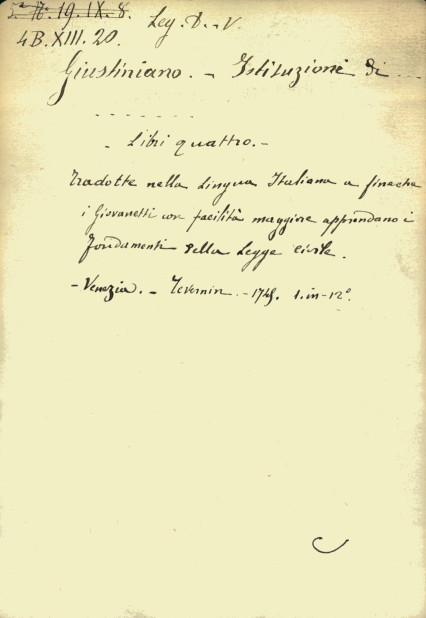 5ª 17. 19. IX. 8. Leg. D. V.
4B. XIII. 20.
Giustiniano. - Istituzioni di ....
. . - - - - . .
- Libri quattro. -
Tradotte nella Lingua Italiana a fineche
i Giovanetti con facilità maggiore apprendano i
fondamenti della Legge civile.
- Venezia. - Tevernin. - 1749. 1. in-12°.